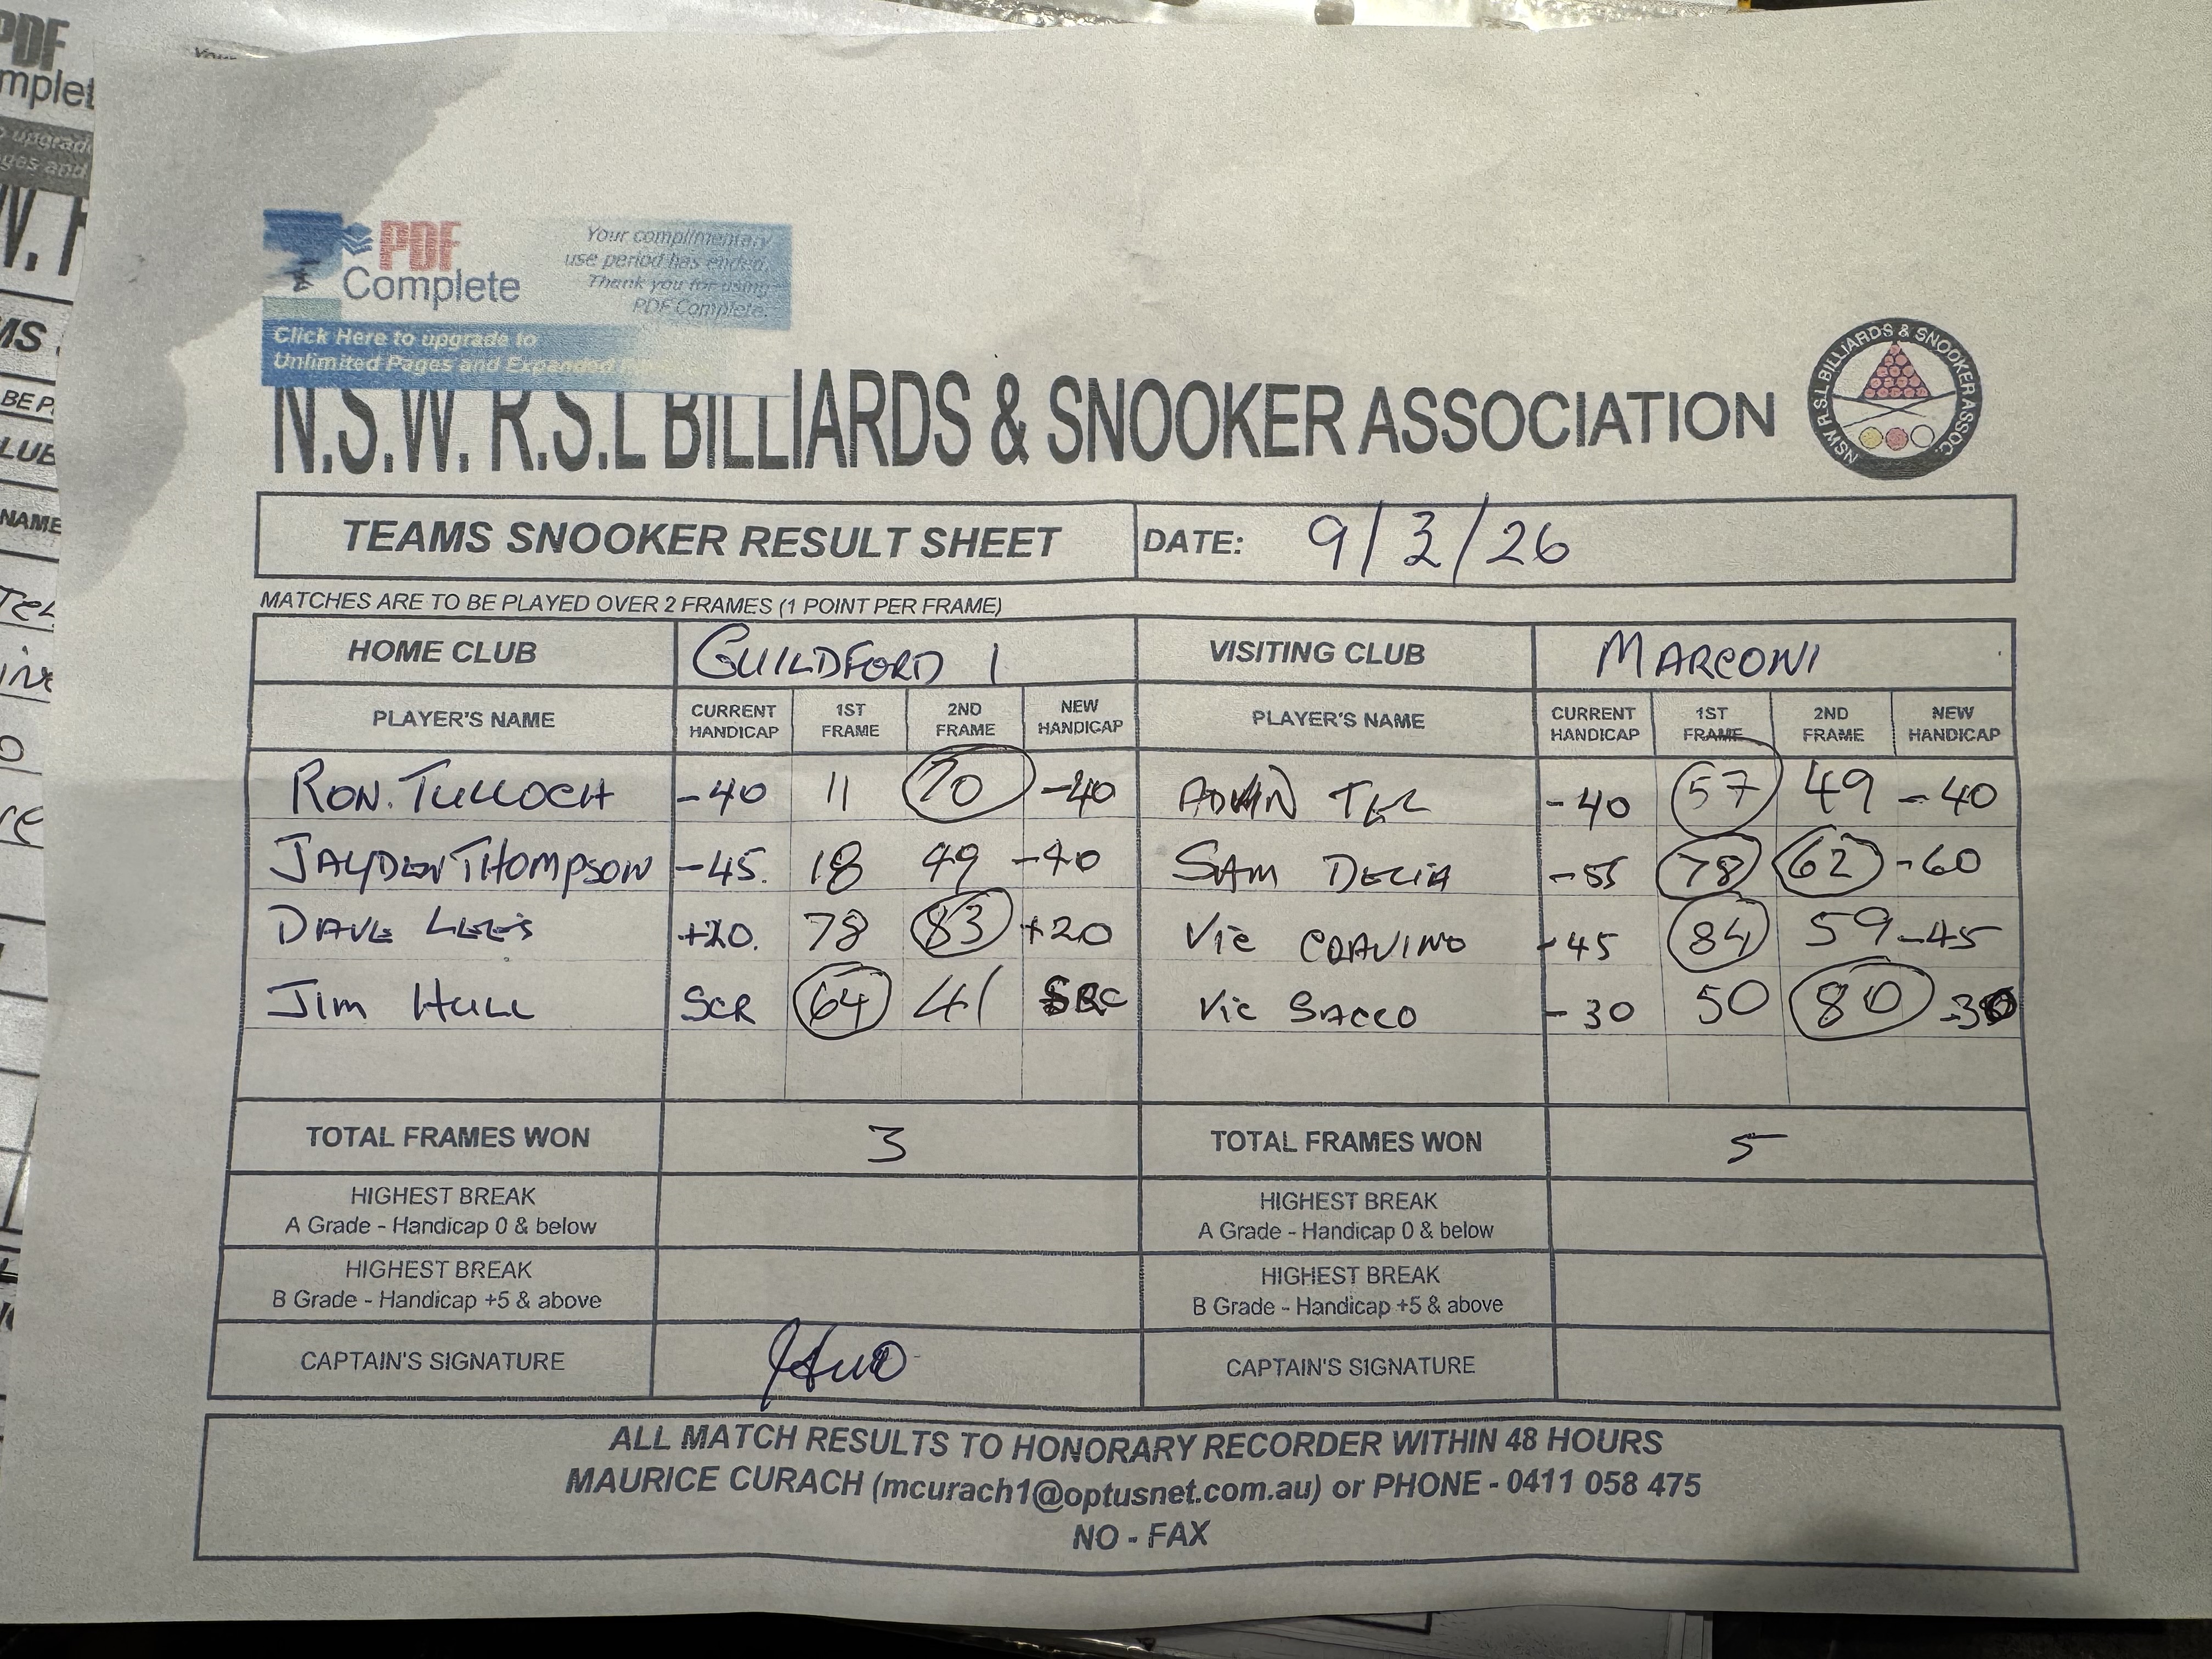 PDF
Complete
Your complimentary
use period has ended.
Thank you for using
PDF Complete.
Click Here to upgrade to
Unlimited Pages and Expanded
N.S.W. R.S.L BILLIARDS & SNOOKER ASSOCIATION
NSW R.S.L BILLIARDS & SNOOKER ASSOC.
TEAMS SNOOKER RESULT SHEET DATE: 9/3/26
MATCHES ARE TO BE PLAYED OVER 2 FRAMES (1 POINT PER FRAME)
HOME CLUB GUILDFORD 1 VISITING CLUB MARCONI
PLAYER'S NAME CURRENT HANDICAP 1ST FRAME 2ND FRAME NEW HANDICAP PLAYER'S NAME CURRENT HANDICAP 1ST FRAME 2ND FRAME NEW HANDICAP
RON. TULLOCH -40 11 70 -40 -40 57 49 -40
JAYDEN THOMPSON -45. 18 49 -40 SAM DELIA -55 78 62 -60
DAVE LEES +20. 78 83 +20 Vic CRAVINO -45 84 59 -45
Jim HULL SCR 64 41 Vic SACCO -30 50 80 -30
TOTAL FRAMES WON 3 TOTAL FRAMES WON 5
HIGHEST BREAK HIGHEST BREAK
A Grade - Handicap 0 & below A Grade - Handicap 0 & below
HIGHEST BREAK HIGHEST BREAK
B Grade - Handicap +5 & above B Grade - Handicap +5 & above
CAPTAIN'S SIGNATURE CAPTAIN'S SIGNATURE
ALL MATCH RESULTS TO HONORARY RECORDER WITHIN 48 HOURS
MAURICE CURACH (mcurach1@optusnet.com.au) or PHONE - 0411 058 475
NO - FAX